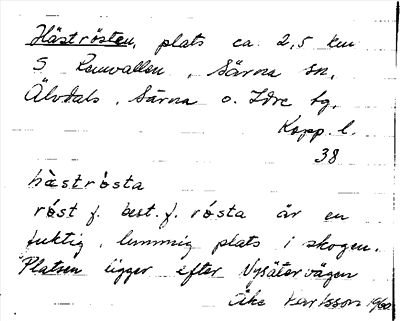 Häströsten, plats ca. 2,5 km
S Remvallen, Särna sn,
Älvdals, Särna o. Idre tg.
Kopp. l.
38
hæströsta
röst f. best. f. rösta är en
fuktig, lummig plats i skogen.
Platsen ligger efter Nysätervägen
Åke Karlsson 1960